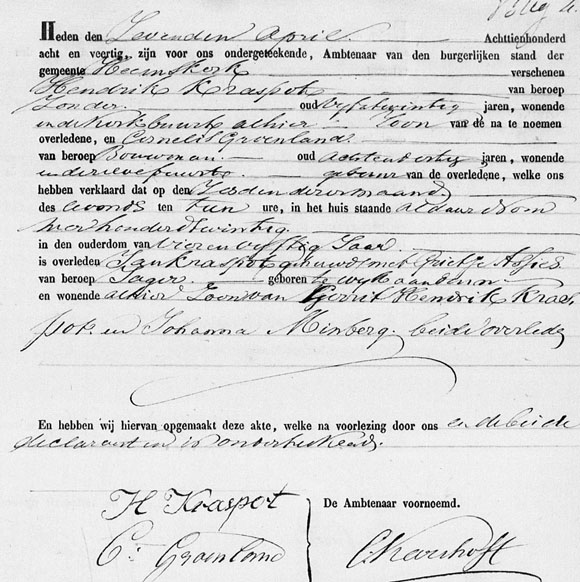 Heden den Zevenden April Achttienhonderd
acht en veertig, zijn voor ons ondergeteekende, Ambtenaar van den burgerlijken stand der
gemeente Heemskerk verschenen
Hendrik Kraspot van beroep
Zonder oud vyfentwintig jaren, wonende
in de Kerkbuurte alhier Zoon van de na te noemen
overledene, en Cornelis Groenland
van beroep Bouwman oud achtendertig jaren, wonende
in de gebuur van de overledene, welke ons
hebben verklaard dat op den Zesden dezer maand
des avonds ten tien ure, in het huis staande aldaar Nom
mer honderdtwintig
in den ouderdom van Vierenvyftig Jaar
is overleden Jan Kraspot gehuwd met Grietje
van beroep geboren te Wyk aan Zee en
en wonende alhier Zoon van Gerrit Hendrik Kras
pot en Johanna Minberg beide overleden
En hebben wij hiervan opgemaakt deze akte, welke na voorlezing door ons en de beide
declaranten is onderteekend.
H Kraspot
De Ambtenaar voornoemd.
C: Groenland